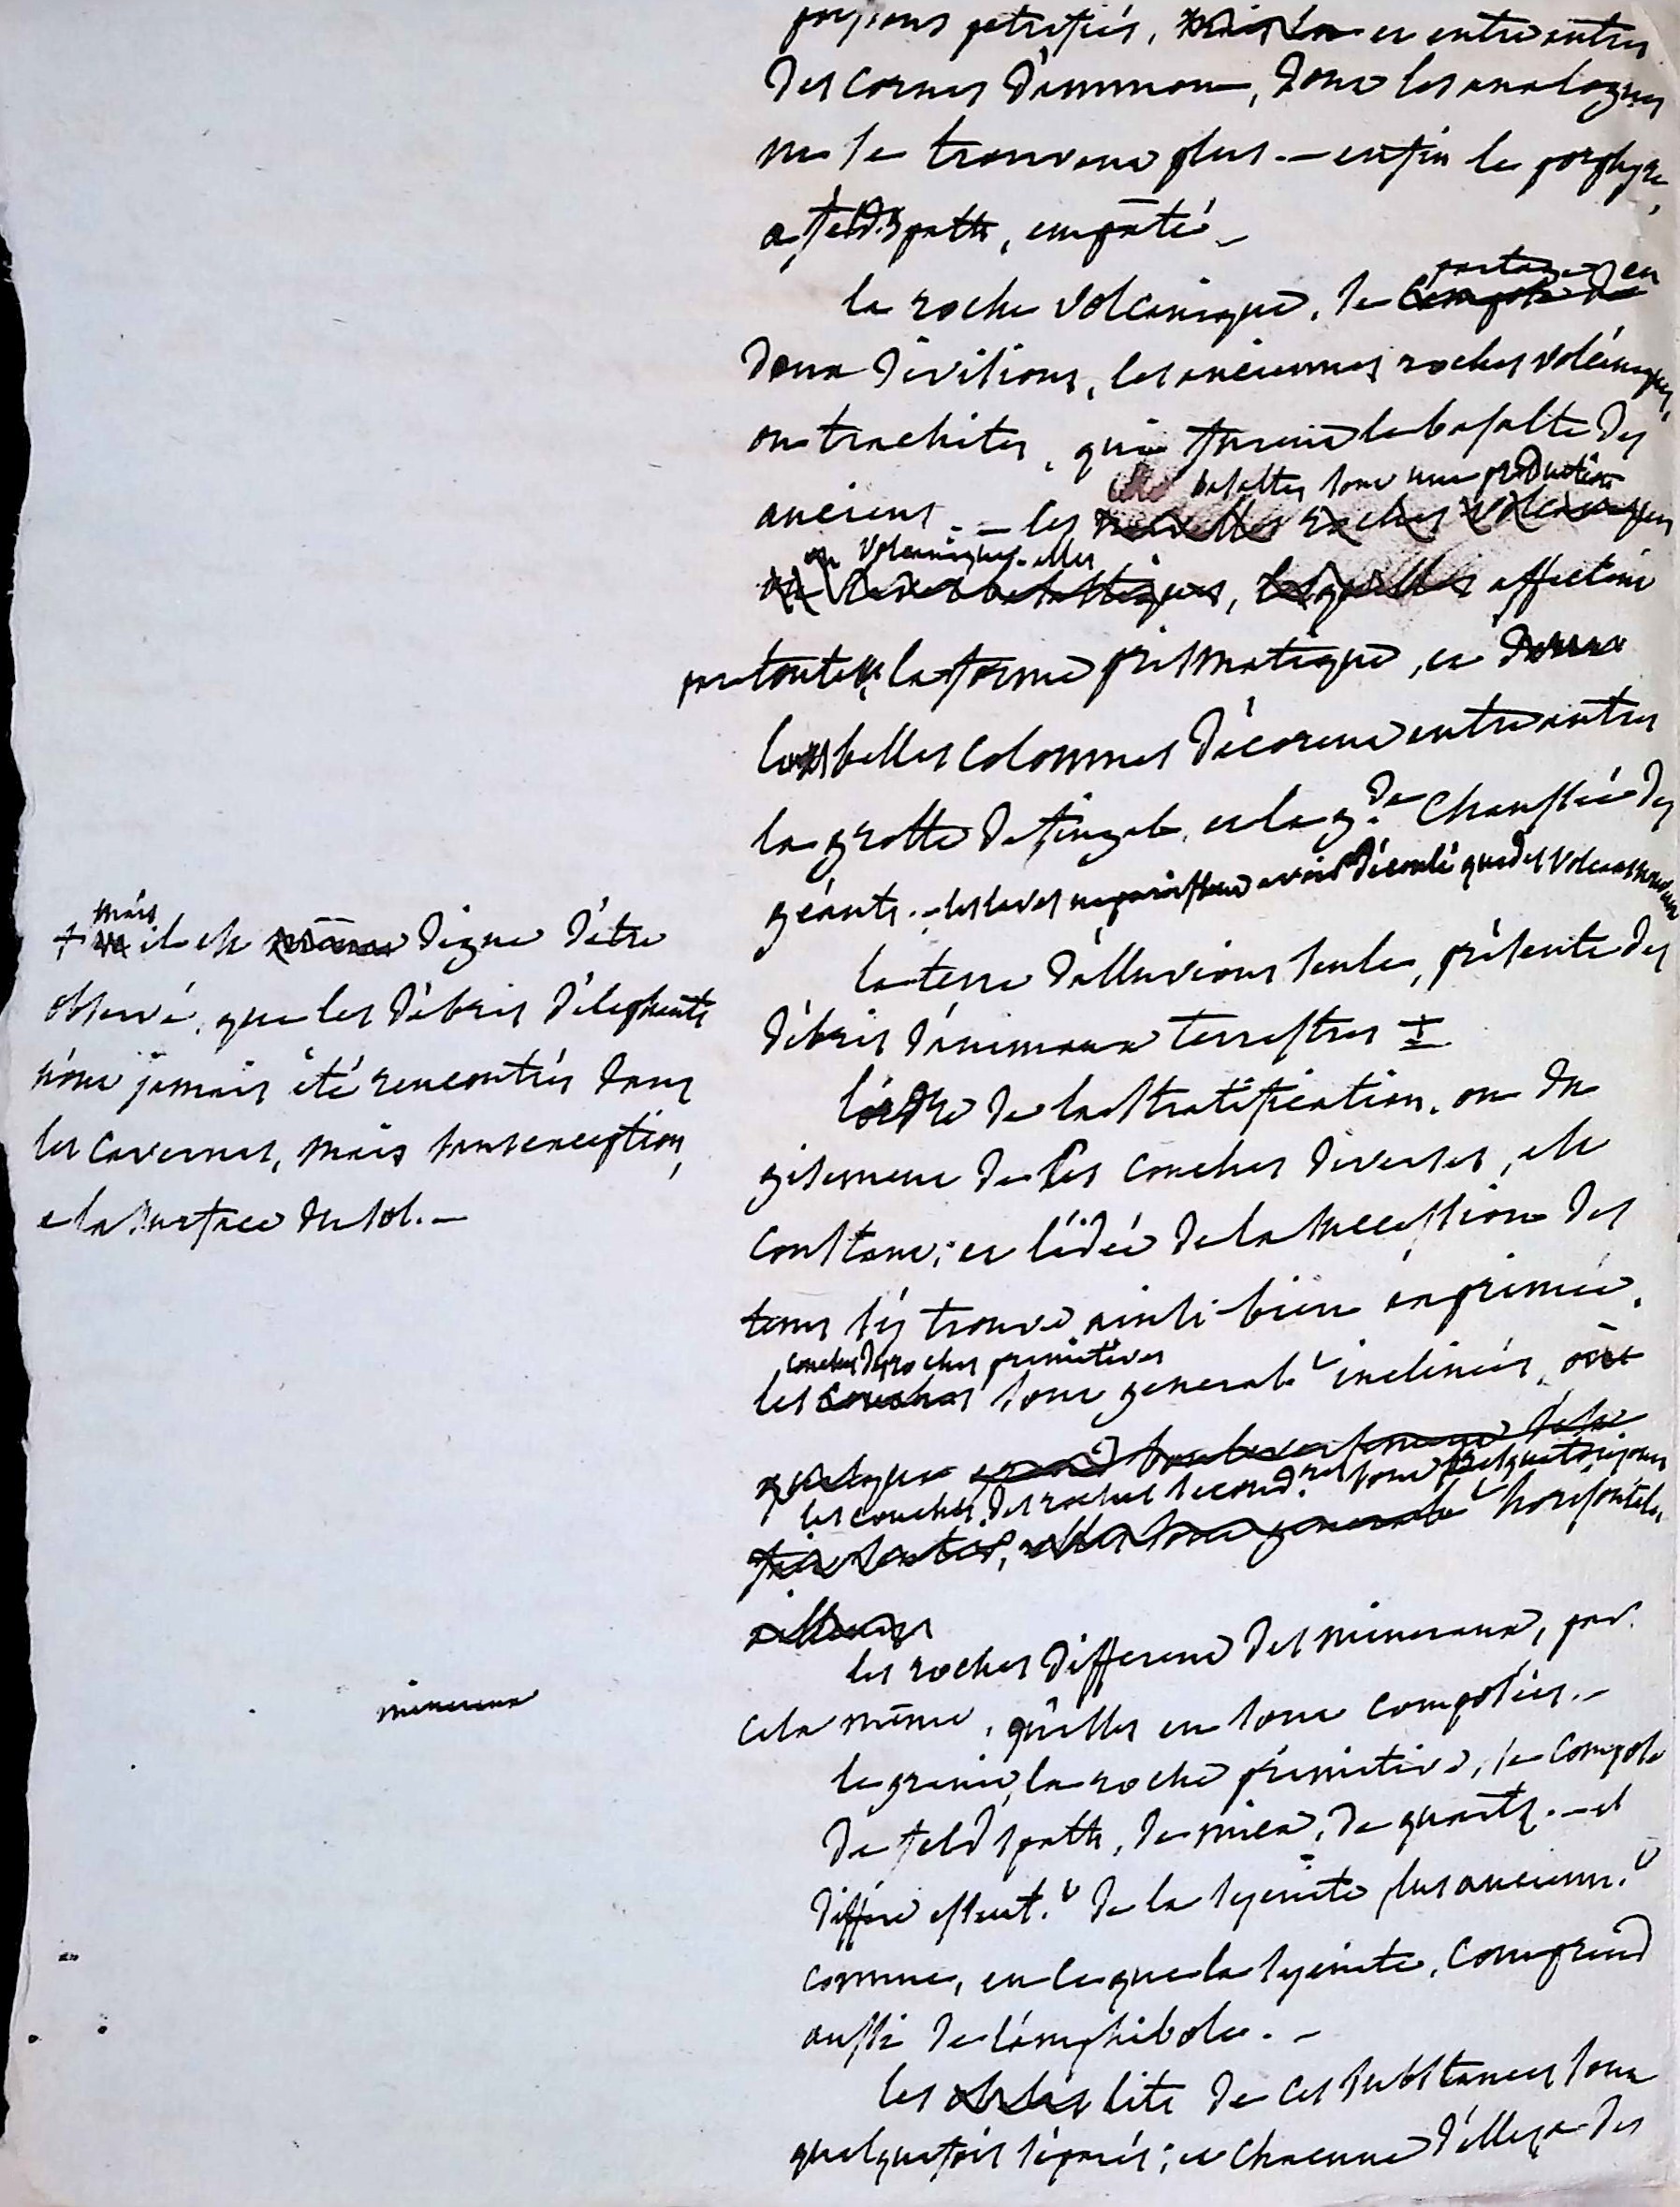 poissons petrifiés, et entre autres
des cornes d'ammon, dont les analogues
ne se trouvent plus. — enfin le porphyre,
a feldspath, empâté —
la roche volcanique, se partage en
deux divisions, les anciennes roches volcaniques,
ou trachites, qui furent le basalte des
basaltes sont une production
anciens. — les nouvelles roches volcaniques
volcanique. elles
ou laves basaltiques, lesquelles affectent
partout la forme prismatique, et dont
les belles colonnes décorent entre autres
la grotte de fingal, et la g.de chaussée des
géants. — les laves ne paraissent avoir découlé que des volcans
la terre d'alluvions seule, présente des
débris d'animaux terrestres ‡
mais
+ il est même digne d'être
observé, que les débris d'éléphants
n'ont jamais été rencontrés dans
les cavernes, mais sans exception,
a la surface du sol. —
l'ordre de la stratification, ou du
gisement de ces couches diverses, est
constant; et l'idée de la succession des
tems s'y trouve ainsi bien exprimée.
couches des roches primitives
les couches sont general.t inclinées,
quelque grand bouleversement
les couches des roches second.res sont presque toujours
elles sont general.t horisontales
les roches different des mineraux, par
mineraux
cela même, qu'elles en sont composées. —
le granit, la roche primitive, se compose
de feldspath, de mica, de quartz. — il
differe essent.t de la syenite plus ancienn.t
connue, en ce que la syenite, comprend
aussi de l'amphibole. —
les lits de ces substances sont
quelquefois séparés; et chacune d'elles a des